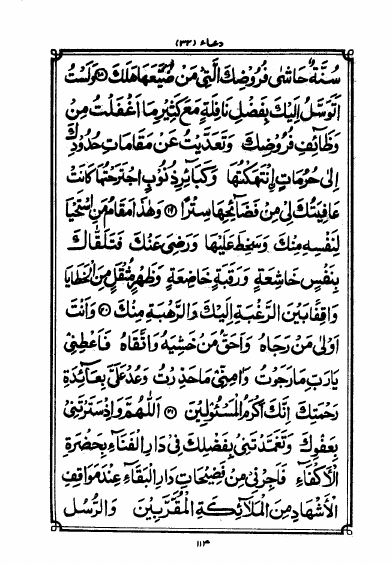 دعاء (٣٢)
سُنَّةٌ حَاشٰى فُرُوْضِكَ الَّتِيْ مَنْ ضَيَّعَهَا هَلَكَ وَلَسْتُ
اَتَوَسَّلُ اِلَيْكَ بِفَضْلِ نَافِلَةٍ مَعَ كَثِيْرِ مَا اَغْفَلْتُ مِنْ
وَظَائِفِ فُرُوْضِكَ وَتَعَدَّيْتُ عَنْ مَقَامَاتِ حُدُوْدِكَ
اِلٰى حُرُمَاتٍ اِنْتَهَكْتُهَا وَكَبَائِرِ ذُنُوْبٍ اجْتَرَحْتُهَا كَانَتْ
عَافِيَتُكَ لِيْ مِنْ فَضَائِحِهَا سِتْرًا وَهٰذَا مَقَامُ مَنِ اسْتَحْيَا
لِنَفْسِهٖ مِنْكَ وَسَخِطَ عَلَيْهَا وَرَضِيَ عَنْكَ فَتَلَقَّاكَ
بِنَفْسٍ خَاشِعَةٍ وَرَقَبَةٍ خَاضِعَةٍ وَظَهْرٍ مُثْقَلٍ مِنَ الْخَطَايَا
وَاقِفًا بَيْنَ الرَّغْبَةِ اِلَيْكَ وَالرَّهْبَةِ مِنْكَ ٢٠ وَاَنْتَ
اَوْلٰى مَنْ رَجَاهُ وَاَحَقُّ مَنْ خَشِيَهُ وَاتَّقَاهُ فَاَعْطِنِيْ
يَا رَبِّ مَا رَجَوْتُ وَاٰمِنِّيْ مَا حَذِرْتُ وَعُدْ عَلَيَّ بِعَائِدَةِ
رَحْمَتِكَ اِنَّكَ اَكْرَمُ الْمَسْئُوْلِيْنَ ٢١ اَللّٰهُمَّ وَاِذْ سَتَرْتَنِيْ
بِعَفْوِكَ وَتَغَمَّدْتَنِيْ بِفَضْلِكَ فِيْ دَارِ الْفَنَاءِ بِحَضْرَةِ
الْاَكْفَاءِ فَاَجِرْنِيْ مِنْ فَضِيْحَاتِ دَارِ الْبَقَاءِ عِنْدَ مَوَاقِفِ
الْاَشْهَادِ مِنَ الْمَلَائِكَةِ الْمُقَرَّبِيْنَ وَالرُّسُلِ
١١٣